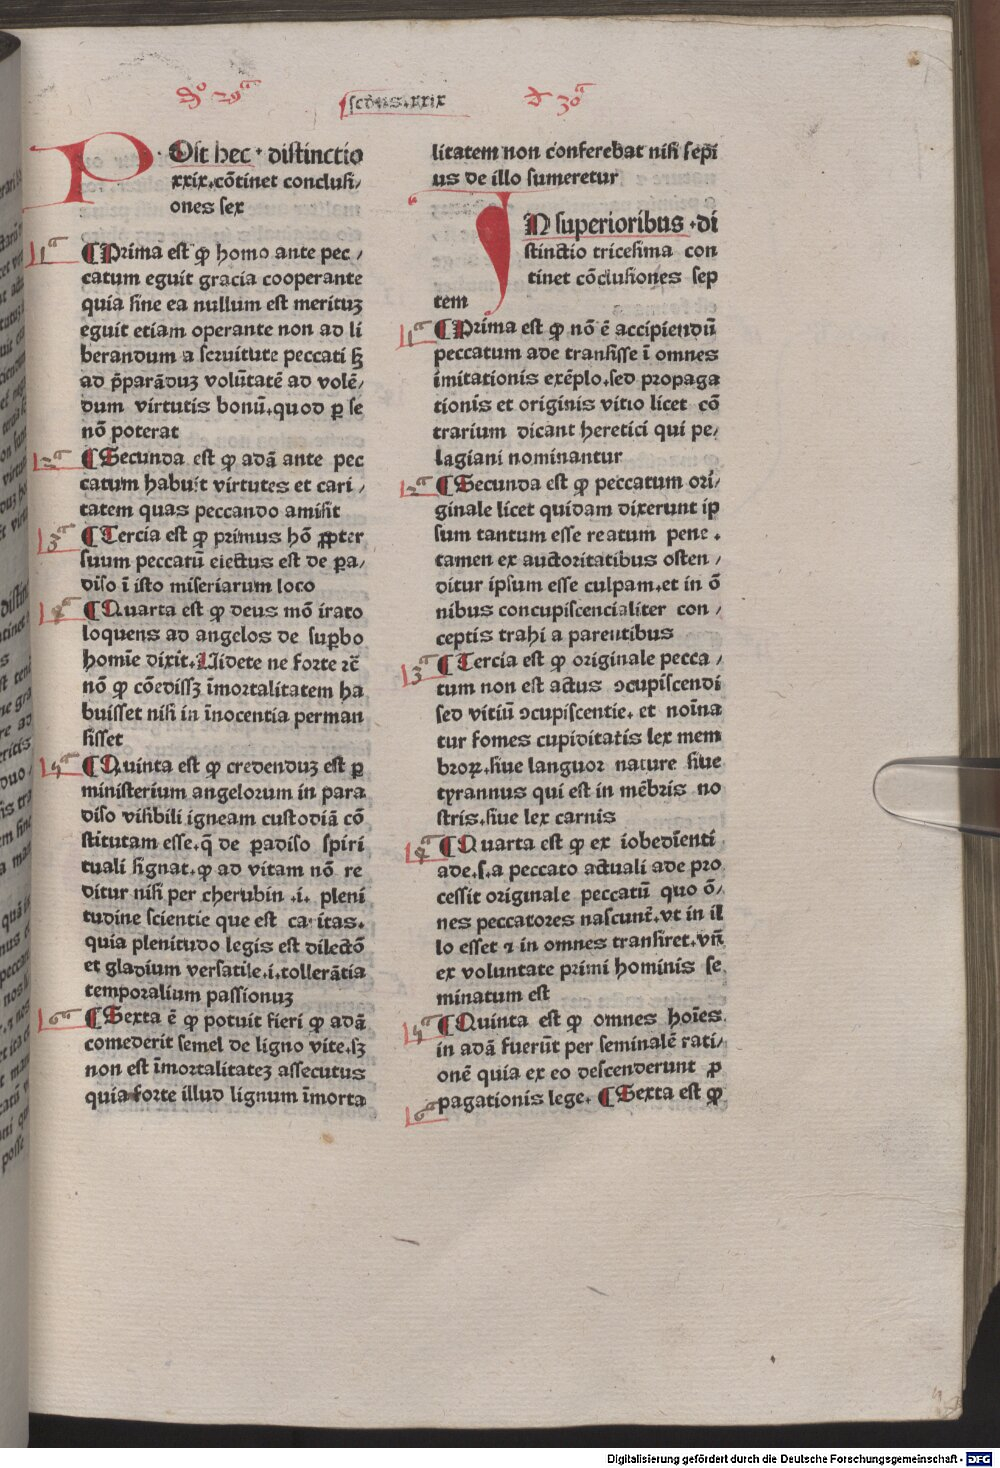 do 29a
scd'us.xxix
d 30a
POst hec · distinctio
xxix.cōtinet conclusi/
ones sex
1a
¶Prima est ꝙ homo ante pec/
catum eguit gracia cooperante
quia sine ea nullum est merituꝫ
eguit etiam operante non ad li
berandum a seruitute peccati sꝫ
ad p̄parāduꝫ volūtatē ad volē/
dum virtutis bonū.quod ꝑ se
nō poterat
2a
¶Secunda est ꝙ adā ante pec
catum habuit virtutes et cari/
tatem quas peccando amisit
3a
¶Tercia est ꝙ primus hō ꝓpter
suum peccatū eiectus est de ꝑa/
diso ī isto miseriarum loco
4a
¶Quarta est ꝙ deus mō irato
loquens ad angelos de suꝑbo
homīe dixit.Uidete ne forte ⁊c̄
nō ꝙ cōedissꝫ īmortalitatem ha
buisset nisi in īnocentia perman
sisset
5a
¶Quinta est ꝙ credenduꝫ est ꝑ
ministerium angelorum in para
diso visibili igneam custodiā cō
stitutam esse.q̄ de ꝑadiso spiri
tuali signat.ꝙ ad vitam nō re
ditur nisi per cherubin .i. pleni
tudine scientie que est caritas.
quia plenitudo legis est dilectō
et gladium versatile.i.tollerātia
temporalium passionuꝫ
6a
¶Sexta ē ꝙ potuit fieri ꝙ adā
comederit semel de ligno vite.sꝫ
non est īmortalitateꝫ assecutus
quia forte illud lignum īmorta
litatem non conferebat nisi sepi
us de illo sumeretur
IN superioribus .di
stinctio tricesima con
tinet cōclusiones sep
tem
1a
¶Prima est ꝙ nō ē accipiendū
peccatum ade transisse ī omnes
imitationis exēplo.sed propaga
tionis et originis vitio licet cō
trarium dicant heretici qui pe/
lagiani nominantur
2a
¶Secunda est ꝙ peccatum ori/
ginale licet quidam dixerunt ip
sum tantum esse reatum pene .
tamen ex auctoritatibus osten/
ditur ipsum esse culpam.et in ō
nibus concupiscencialiter con/
ceptis trahi a parentibus
3a
¶Tercia est ꝙ originale pecca/
tum non est actus ↄcupiscendi
sed vitiū ↄcupiscentie. et noīna
tur fomes cupiditatis lex mem
broꝝ.siue languor nature siue
tyrannus qui est in mēbris no
stris.siue lex carnis
4a
¶Quarta est ꝙ ex iobedīenti
ade.s.a peccato actuali ade pro
cessit originale peccatū quo ō/
nes peccatores nascunt̄.vt in il
lo esset ⁊ in omnes transiret.vn̄
ex voluntate primi hominis se.
minatum est
5a
¶Quinta est ꝙ omnes hoīes
in adā fuerūt per seminalē rati/
onē quia ex eo descenderunt ꝓ
pagationis lege. ¶Sexta est ꝙ
6a
Digitalisierung gefördert durch die Deutsche Forschungsgemeinschaft - DFG